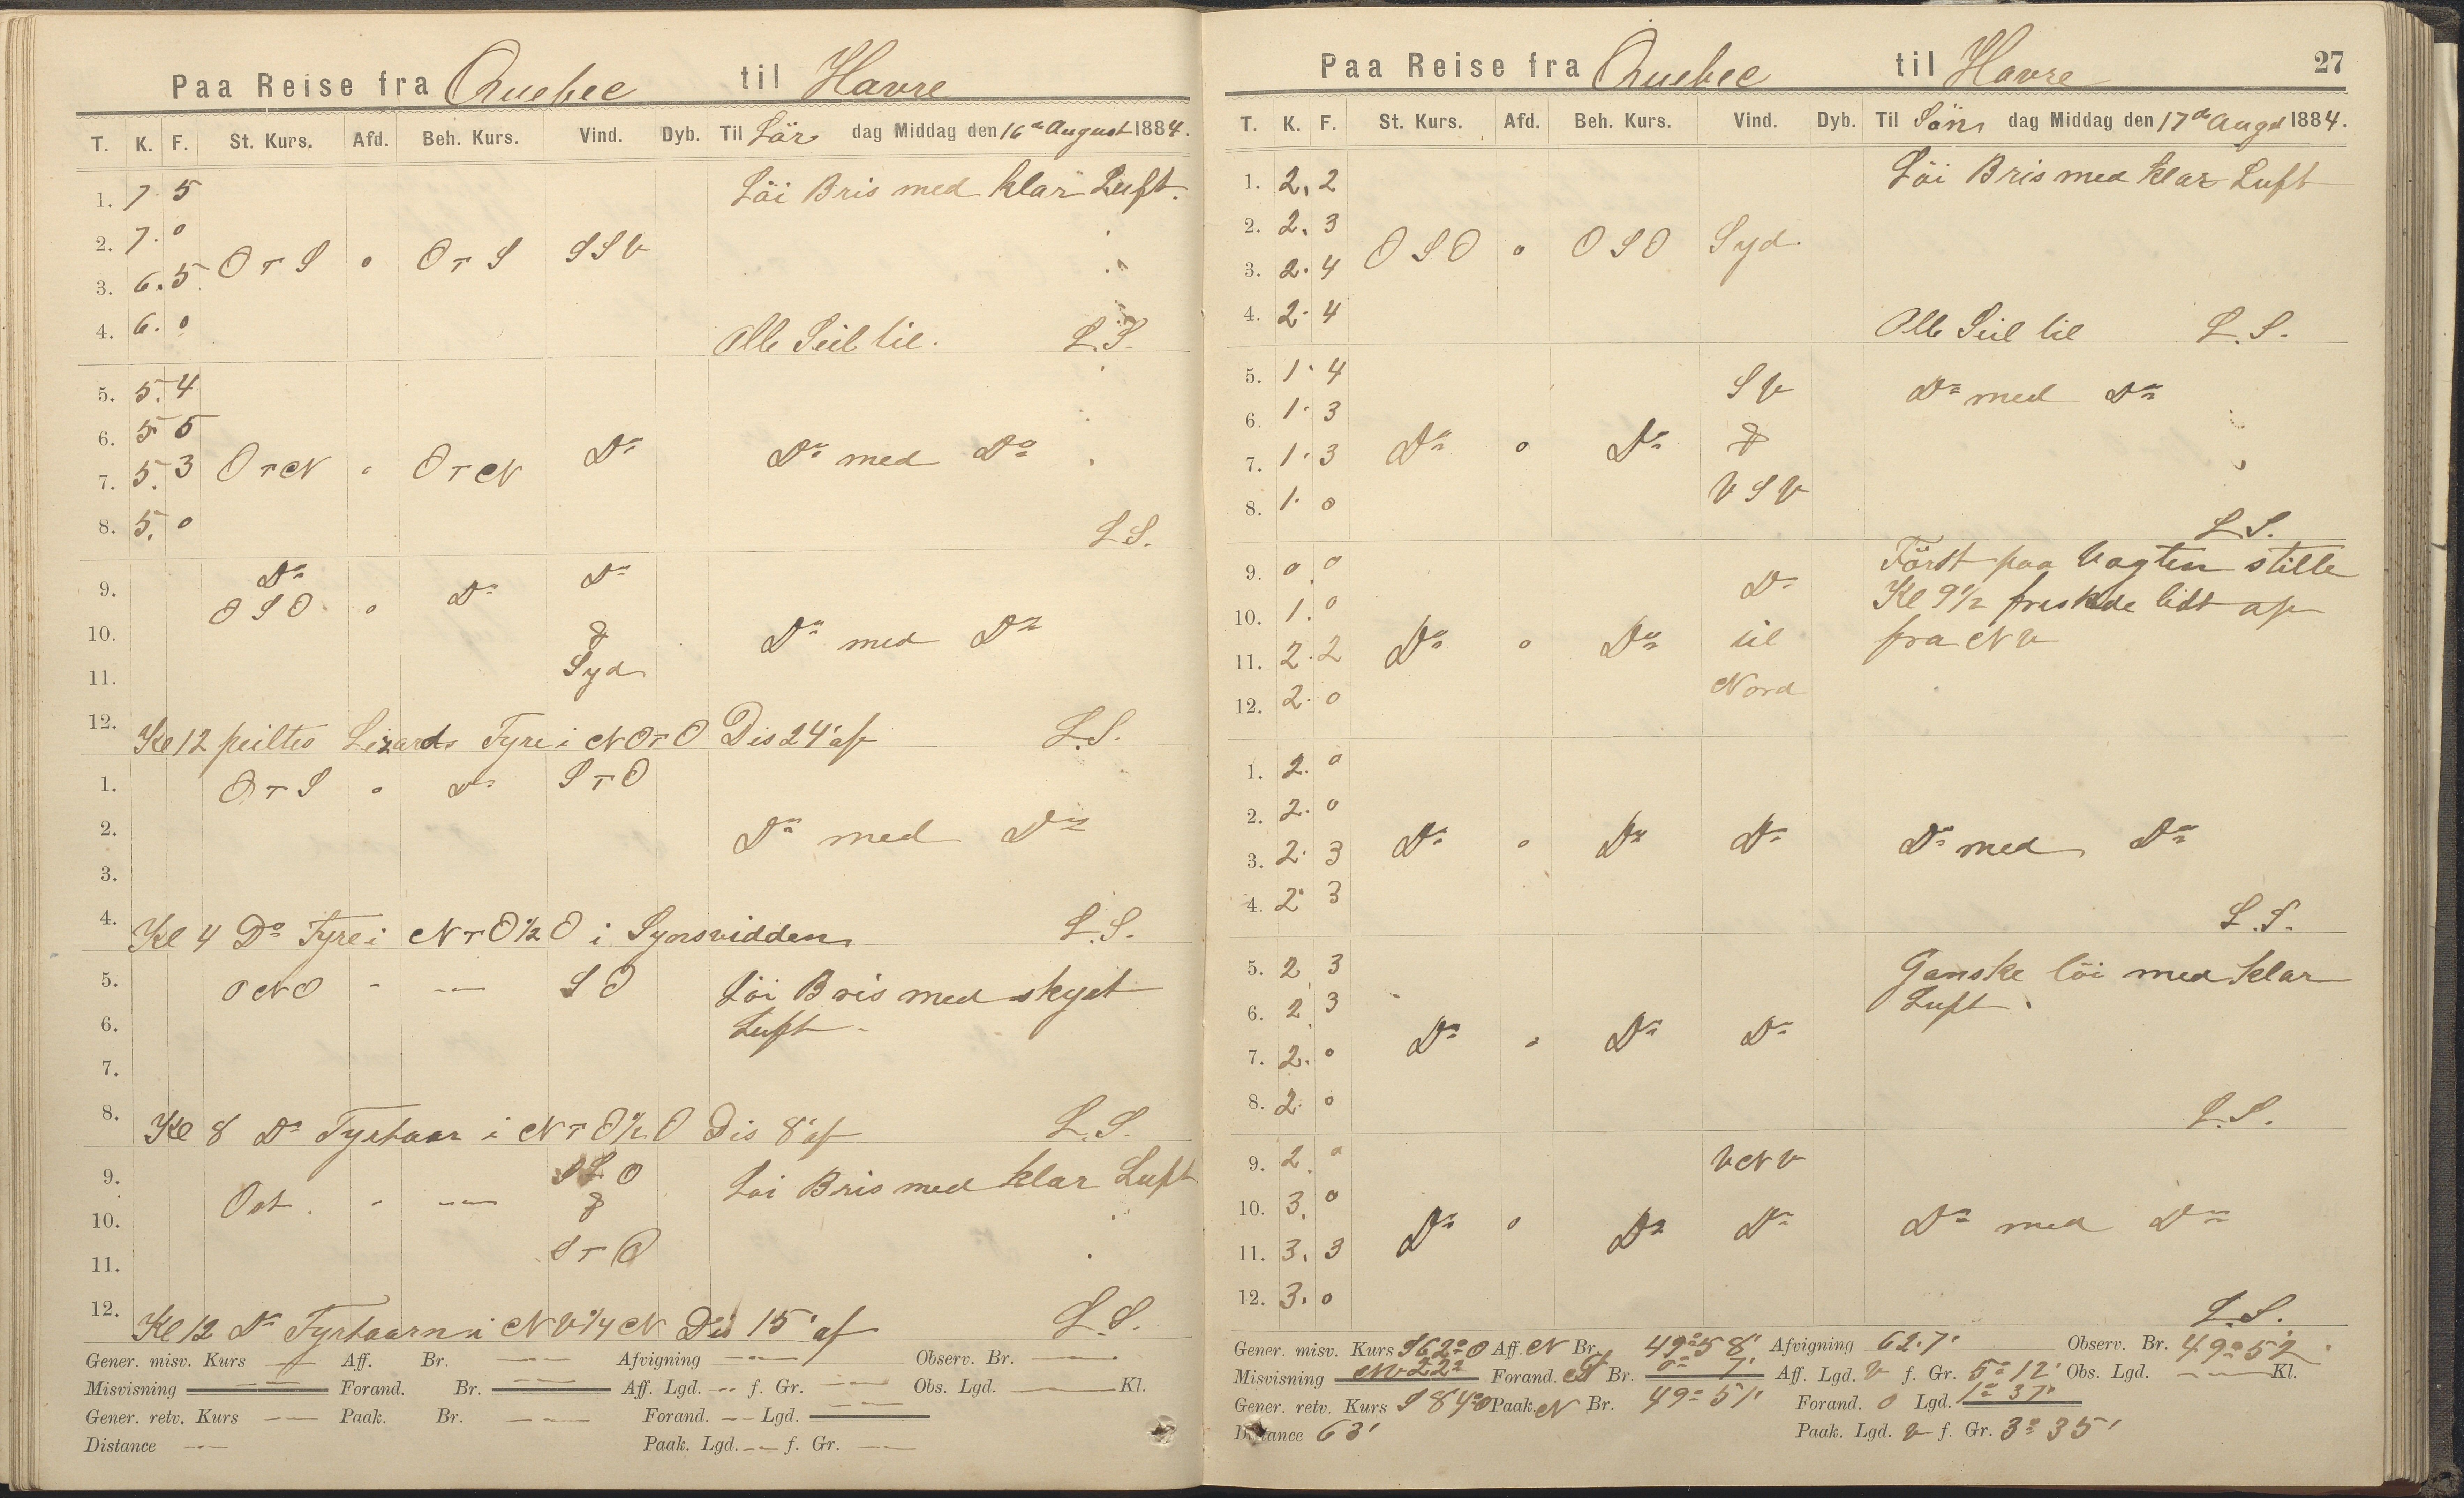 Paa Reise fra Quebec til Havre
T. K. F. St. Kurs. Afd. Beh. Kurs. Vind. Dyb. Til Lör dag Middag den 16de August 1884.
1. 7. 5 Löi Bris med klar Luft.
2. 7. 0
O т S 0 O т S SSV
3. 6. 5
4. 6. 0 Alle Seil til. L.S.
5. 5. 4
6. 5 5
7. 5. 3 O т N 0 O т N Do Do med Do
8. 5. 0 L.S.
9. Do Do
OSO 0 Do
10. & Do med Do
11. Syd
12. Kl 12 peiltes Lizards Fyre i NO т O Dis 24' af L.S.
1. O т S 0 Do S т O
2. Do med Do
3.
4. Kl 4 Do Fyre i N т O ½ O i Synsvidden L.S.
5. ONO - -- SO Löi Bris med skyet
6. Luft
7.
8. Kl 8 Do Fyrtaar i N т O ½ O Dis 8' af L.S.
9. O Löi Bris med klar Luft
10. Ost. - -- &
11. S т O
12. Kl 12 Do Fyrtaarn i NV ¼ N Dis 15' af L.S.
Gener. misv. Kurs -- Aff. Br. -- Afvigning -- Observ. Br. --
Misvisning -- Forand. Br. -- Aff. Lgd. -- f. Gr. -- Obs. Lgd. -- Kl.
Gener. retv. Kurs -- Paak. Br. -- Forand. -- Lgd. --
Distance -- Paak. Lgd. -- f. Gr. --
Paa Reise fra Quebec til Havre 27
T. K. F. St. Kurs. Afd. Beh. Kurs. Vind. Dyb. Til Sön dag Middag den 17de Augst 1884.
1. 2. 2 Löi Bris med klar Luft
2. 2. 3
OSO 0 OSO Syd.
3. 2. 4
4. 2. 4 Alle Seil til L.S.
5. 1. 4 SV Do med Do
6. 1. 3
7. 1. 3 Do 0 Do &
8. 1. 0 VSV
L.S.
9. 0. 0 Do Först paa Vagten stille
10. 1. 0 Kl 9½ friskede lidt op
11. 2. 2 Do 0 Do til fra NV
12. 2. 0 Nord
1. 2. 0
2. 2. 0
3. 2. 3 Do 0 Do Do Do med Do
4. 2. 3 L.S.
5. 2 3 Ganske löi med klar
6. 2. 3 Luft.
7. 2. 0 Do 0 Do Do
8. 2. 0 L.S.
9. 2. 0 VNV
10. 3. 0 Do 0 Do Do Do med Do
11. 3. 3
12. 3. 0 L.S.
Gener. misv. Kurs S62°O Aff. N Br. 49°58' Afvigning 62.7' Observ. Br. 49°52
Misvisning NV 22° Forand. S Br. 0° 7' Aff. Lgd. V f. Gr. 5°12' Obs. Lgd. -- Kl.
Gener. retv. Kurs S84°O Paak. N Br. 49°51' Forand. O Lgd. 1°37'
Distance 63' Paak. Lgd. V f. Gr. 3°35'